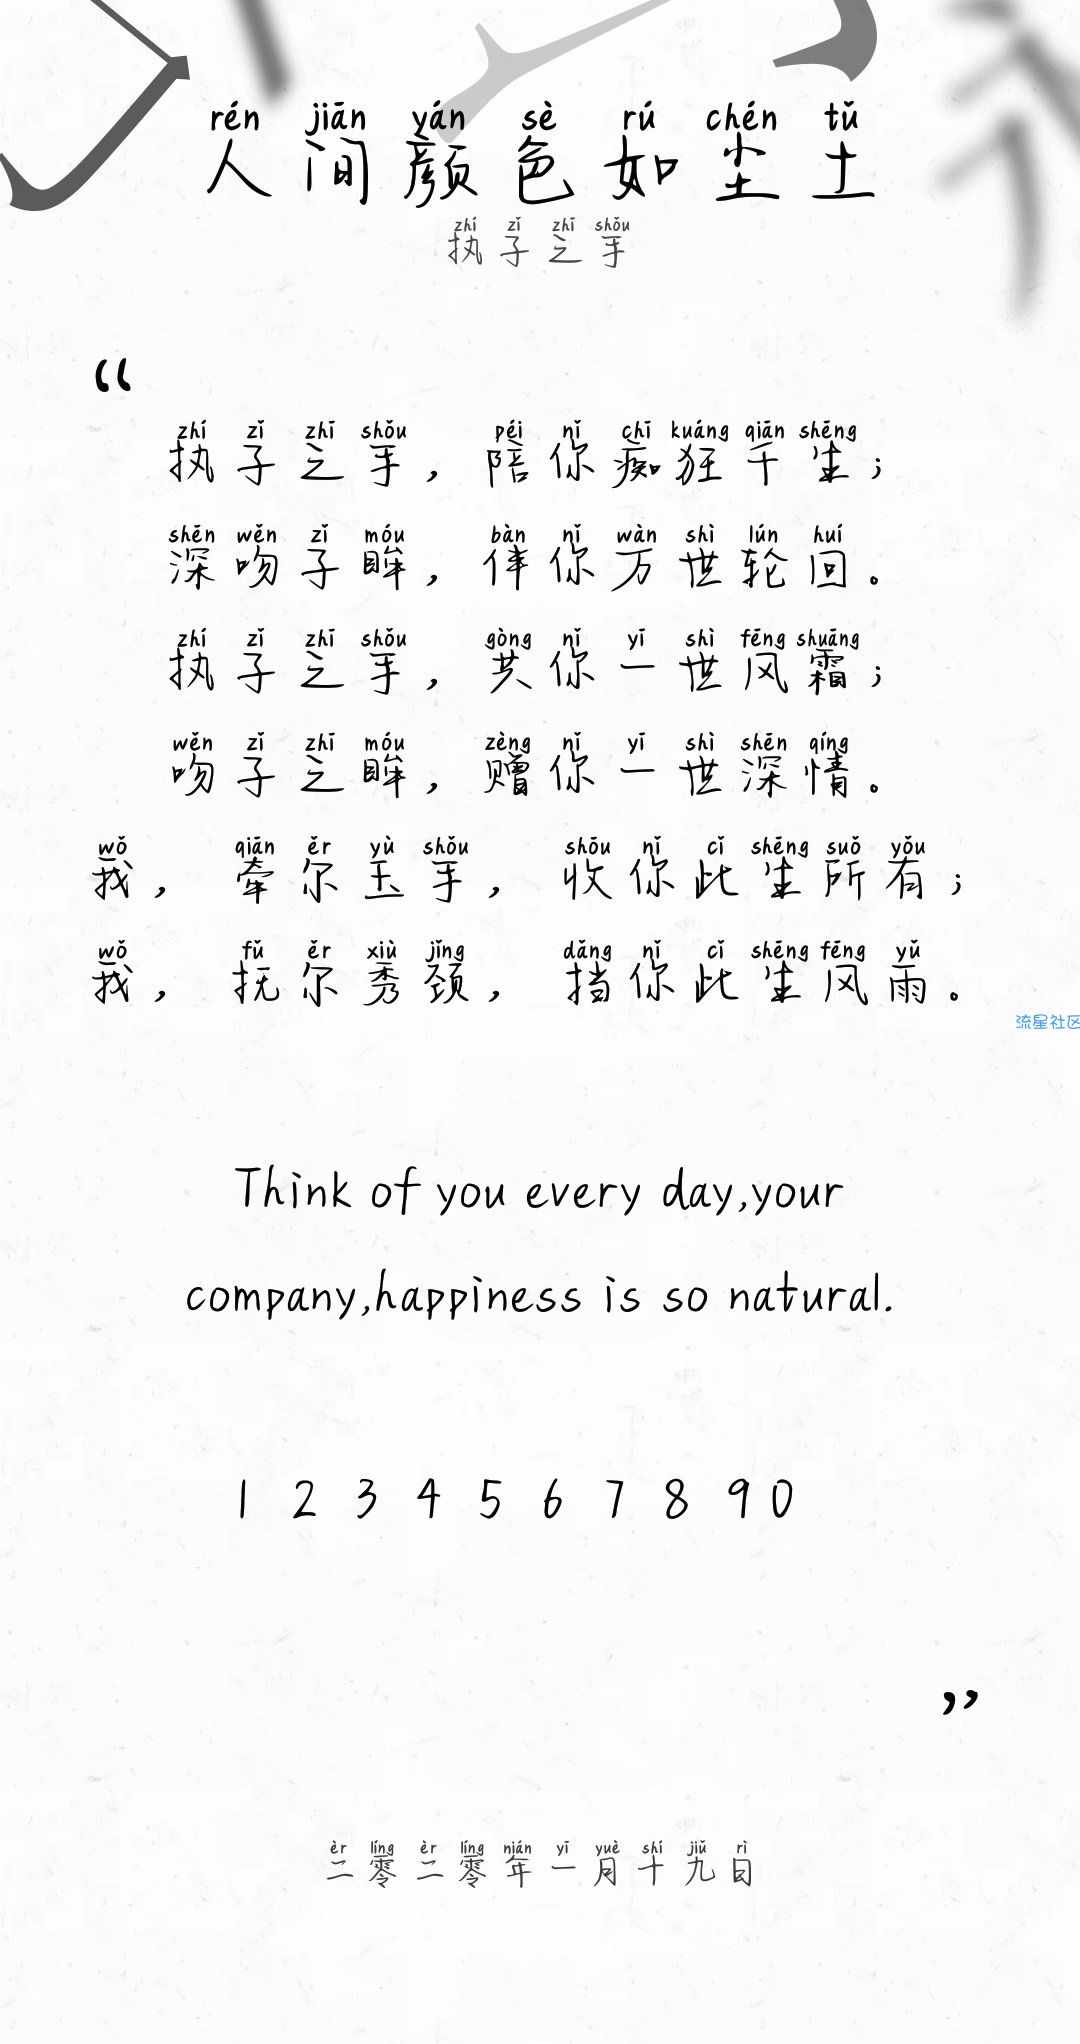 rén jiān yán sè rú chén tǔ
人间颜色如尘土
zhí zǐ zhī shǒu
执子之手
“
zhí zǐ zhī shǒu péi nǐ chī kuáng qiān shēng
执子之手，陪你痴狂千生；
shēn wěn zǐ móu bàn nǐ wàn shì lún huí
深吻子眸，伴你万世轮回。
zhí zǐ zhī shǒu gòng nǐ yī shì fēng shuāng
执子之手，共你一世风霜；
wěn zǐ zhī móu zèng nǐ yī shì shēn qíng
吻子之眸，赠你一世深情。
wǒ qiān ěr yù shǒu shōu nǐ cǐ shēng suǒ yǒu
我，牵尔玉手，收你此生所有；
wǒ fǔ ěr xiù jǐng dǎng nǐ cǐ shēng fēng yǔ
我，抚尔秀颈，挡你此生风雨。
流星社区
Think of you every day,your
company,happiness is so natural.
1 2 3 4 5 6 7 8 9 0
”
èr líng èr líng nián yī yuè shí jiǔ rì
二零二零年一月十九日